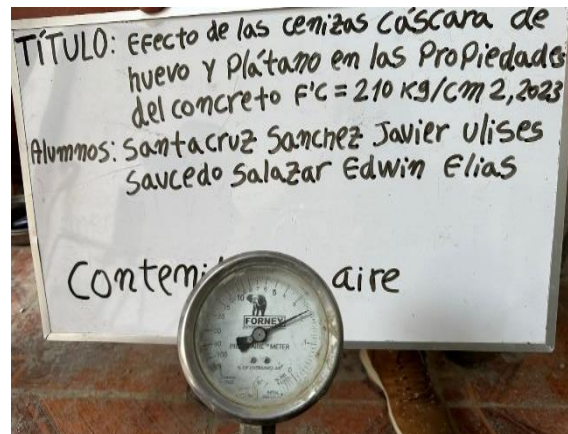 TÍTULO: EFecto de las cenizas cáscara de
huevo y Plátano en las ProPiedades
del concreto F'C = 210 KG/CM 2, 2023
Alumnos: Santacruz Sanchez Javier Ulises
Saucedo Salazar Edwin Elias
aire
FORNEY
METER